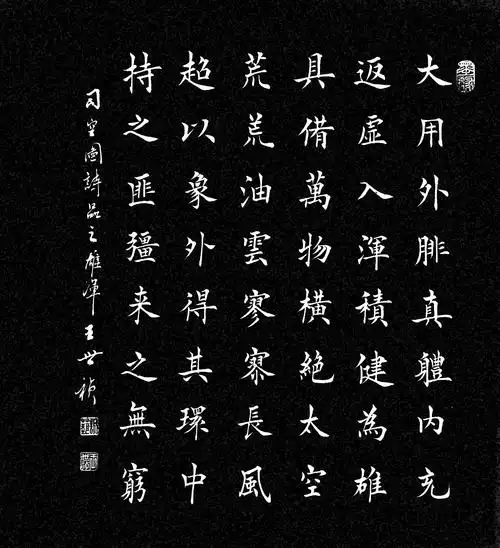 大用外腓真體內充
返虛入渾積健為雄
具備萬物橫絶太空
荒荒油雲寥寥長風
超以象外得其環中
持之匪彊来之無窮
司空圖詩品之雄渾 王世禎